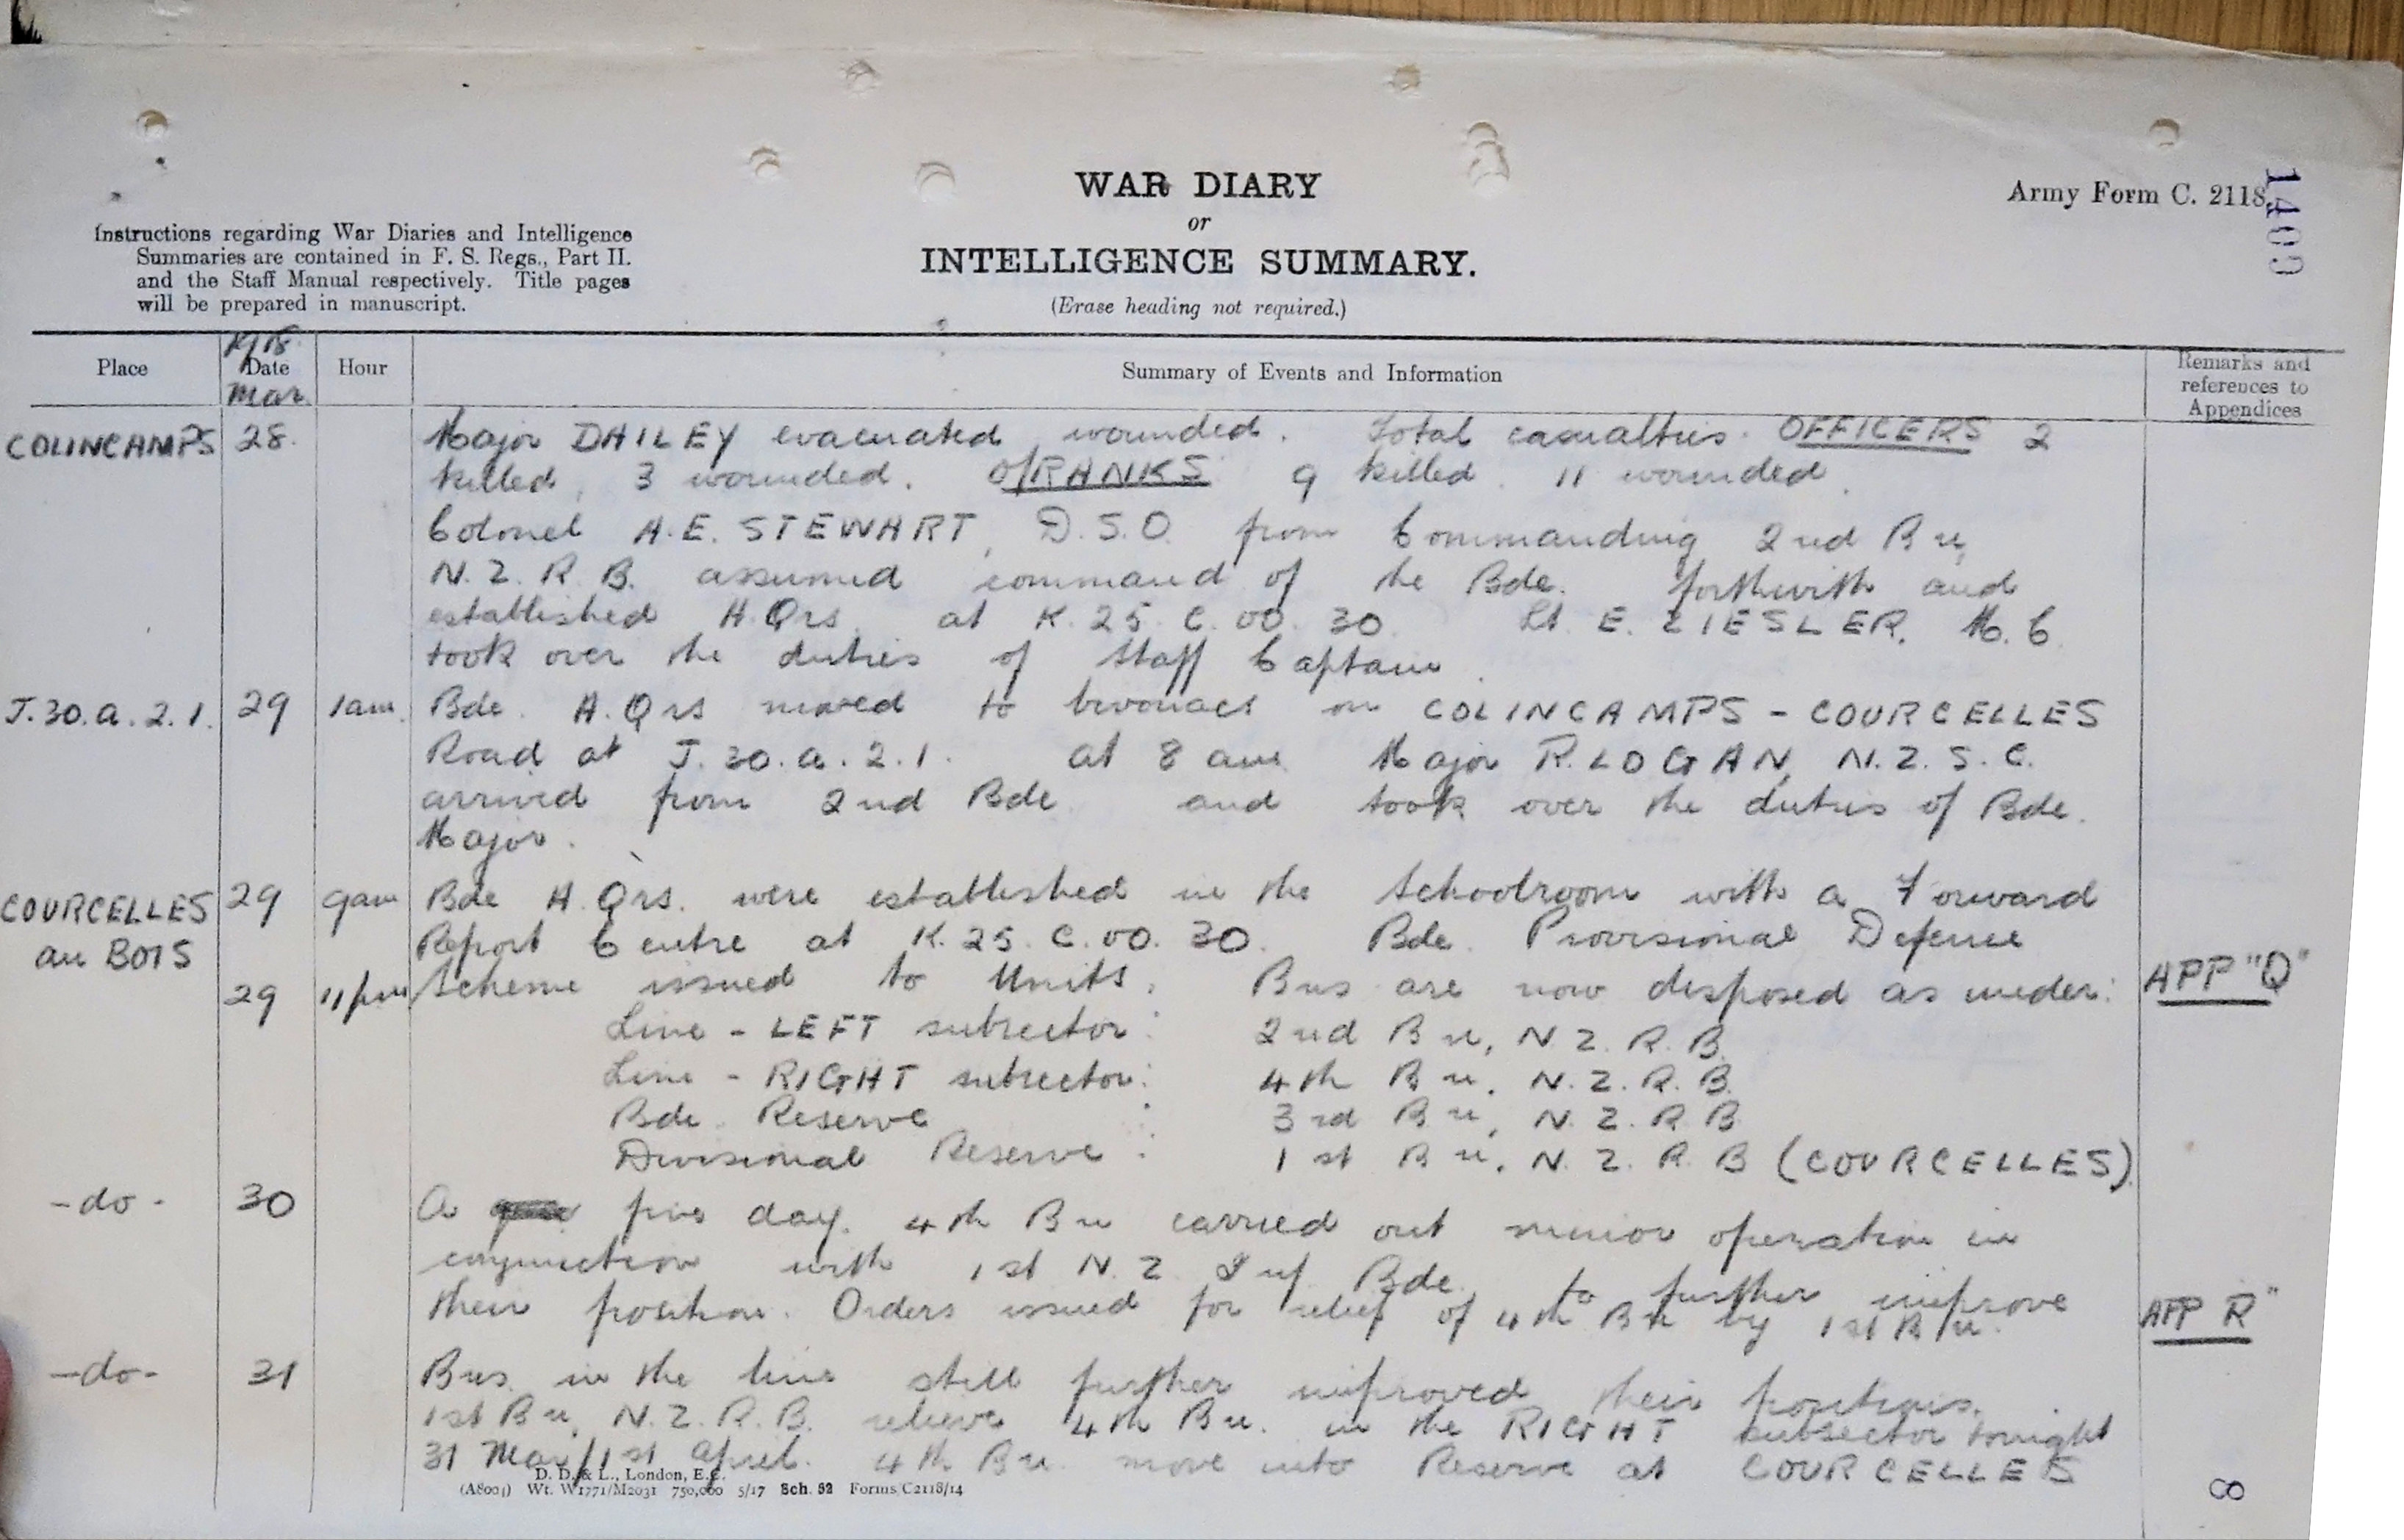 WAR DIARY
or
INTELLIGENCE SUMMARY.
(Erase heading not required.)
Army Form C. 2118.
1409
Instructions regarding War Diaries and Intelligence
Summaries are contained in F. S. Regs., Part II.
and the Staff Manual respectively. Title pages
will be prepared in manuscript.
Place
1918
Date
Mar.
Hour
Summary of Events and Information
Remarks and
references to
Appendices
COLINCAMPS 28. Major DAILEY evacuated wounded. Total casualties. OFFICERS 2
killed, 3 wounded. O/RANKS 9 killed. 11 wounded.
Colonel A.E. STEWART, D.S.O. from Commanding 2nd Bn,
N.Z.R.B. assumed command of the Bde. forthwith and
established H.Qrs. at K.25.C.00.30 Lt E. ZIESLER, M.C.
took over the duties of Staff Captain.
J.30.a.2.1. 29 1am. Bde. H.Qrs moved to bivouacs on COLINCAMPS - COURCELLES
Road at J.30.a.2.1. at 8 am Major R. LOGAN, N.Z.S.C.
arrived from 2nd Bde and took over the duties of Bde.
Major.
COURCELLES 29 9am Bde H.Qrs. were established in the Schoolroom with a Forward
au BOIS Report Centre at K.25.C.00.30. Bde. Provisional Defence
29 11pm Scheme issued to Units. Bns are now disposed as under: APP "Q"
Line - LEFT subsector: 2nd Bn, N.Z.R.B.
Line - RIGHT subsector: 4th Bn. N.Z.R.B.
Bde. Reserve : 3rd Bn, N.Z.R.B
Divisional Reserve : 1st Bn. N.Z.R.B (COURCELLES).
- do - 30 A fine day. 4th Bn carried out minor operation in
conjunction with 1st N.Z Inf Bde. to further improve
their position. Orders issued for relief of 4th Bn by 1st Bn. APP R"
- do - 31 Bns. in the line still further improved their positions.
1st Bn, N.Z.R.B. relieve 4th Bn. in the RIGHT subsector tonight
31 Mar/1st April. 4th Bn. move into Reserve at COURCELLES
D. D. & L., London, E.C.
(A8001) Wt. W1771/M2031 750,000 5/17 Sch. 52 Forms/C2118/14
8